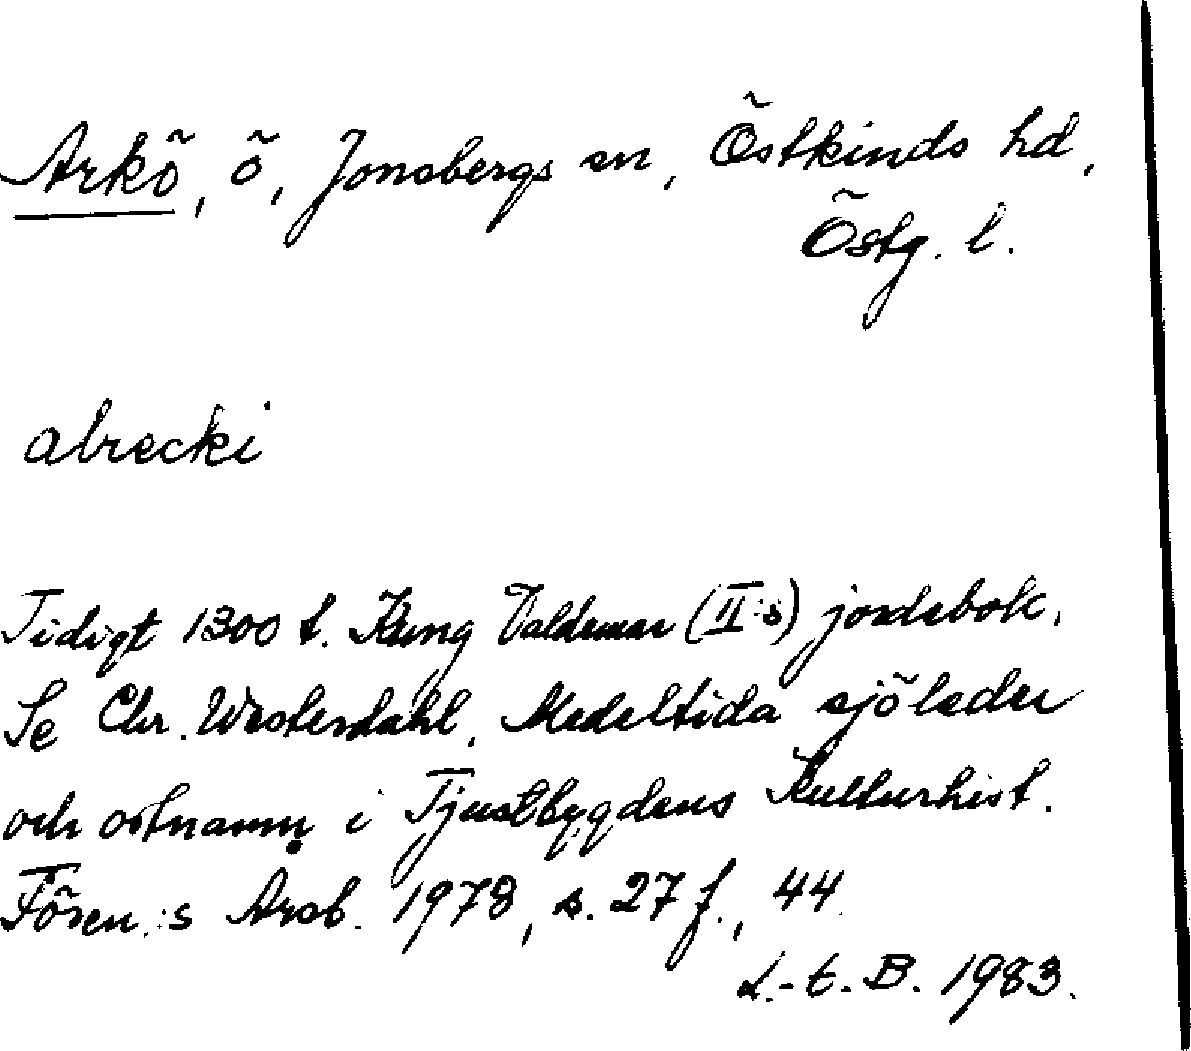 Arkö, ö, Jonsbergs sn, Östkinds hd,
Östg. l.
abrecki
Tidigt 1300 t. Kung Valdemar (II:s) jordebok.
Se Chr. Westerdahl, Medeltida sjöleder
och ortnamn i Tjustbygdens Kulturhist.
Fören.:s Årsb. 1978, s. 27 f., 44.
L.-t. B. 1983.